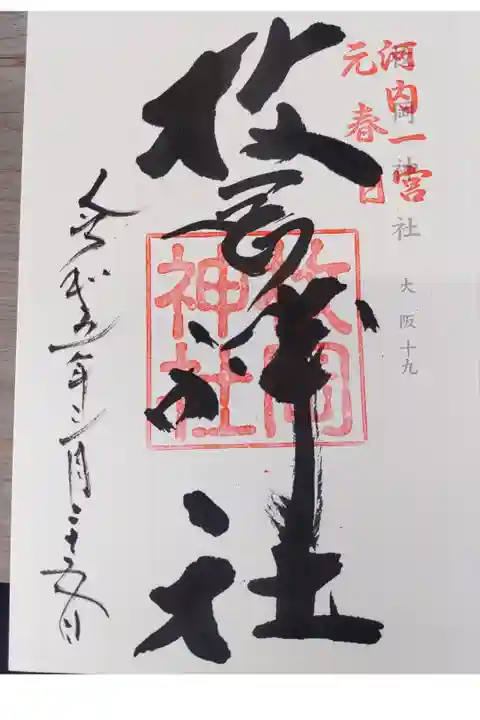 河内一宮
元春日
枚岡神社
大阪十九
枚岡神社
枚岡
神社
令和五年三月二十五日